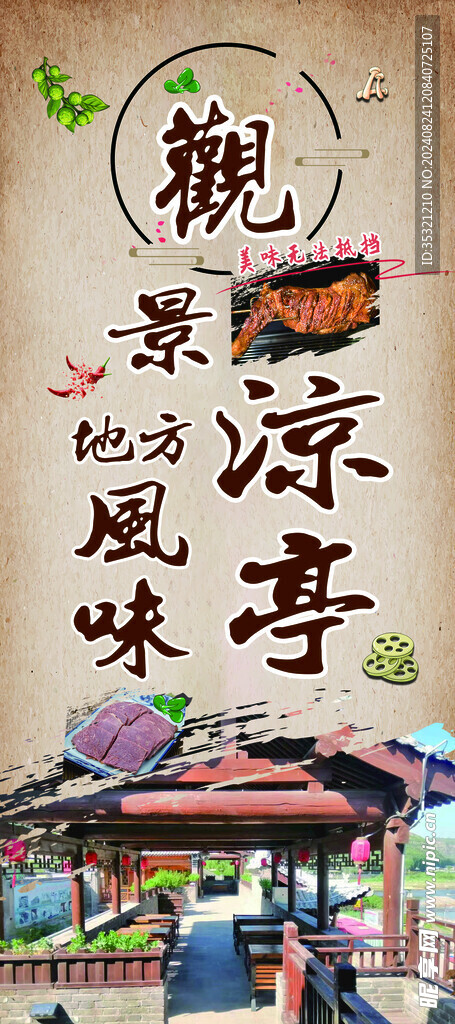 觀
景
涼
亭
美味无法抵挡
地方
風
味
ID:35321210 NO:20240824120840725107
昵享网 www.nipic.cn